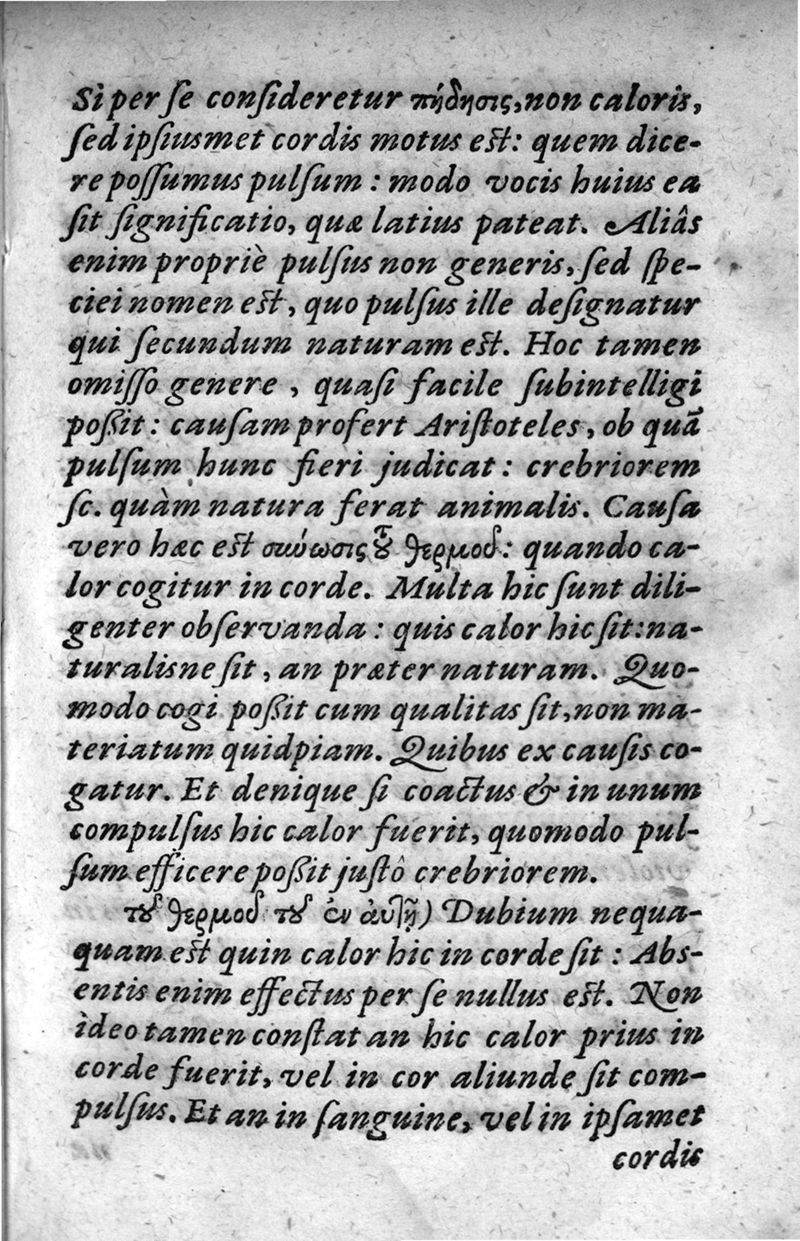 Si per ſe conſideretur πήδησις, non caloris,
ſed ipſiusmet cordis motus eſt: quem dice-
re poſſumus pulſum : modo vocis huius ea
ſit ſignificatio, quæ latius pateat. Aliâs
enim propriè pulſus non generis, ſed ſpe-
ciei nomen eſt, quo pulſus ille deſignatur
qui ſecundum naturam eſt. Hoc tamen
omiſſo genere , quaſi facile ſubintelligi
poßit : cauſam profert Ariſtoteles, ob quã
pulſum hunc fieri judicat : crebriorem
ſc. quàm natura ferat animalis. Cauſa
vero hæc eſt σωύωσις τ͂ȣ θερμοῦ: quando ca-
lor cogitur in corde. Multa hic ſunt dili-
genter obſervanda : quis calor hic ſit: na-
turalisne ſit, an præter naturam. Quo-
modo cogi poßit cum qualitas ſit, non ma-
teriatum quidpiam. Quibus ex cauſis co-
gatur. Et denique ſi coactus & in unum
compulſus hic calor fuerit, quomodo pul-
ſum efficere poßit juſtô crebriorem.
τοῦ θερμοῦ τοῦ ἐν αὐτῇ) Dubium nequa-
quam eſt quin calor hic in corde ſit : Abs-
entis enim effectus per ſe nullus eſt. Non
ideo tamen conſtat an hic calor prius in
corde fuerit, vel in cor aliunde ſit com-
pulſus. Et an in ſanguine, vel in ipſamet
cordis